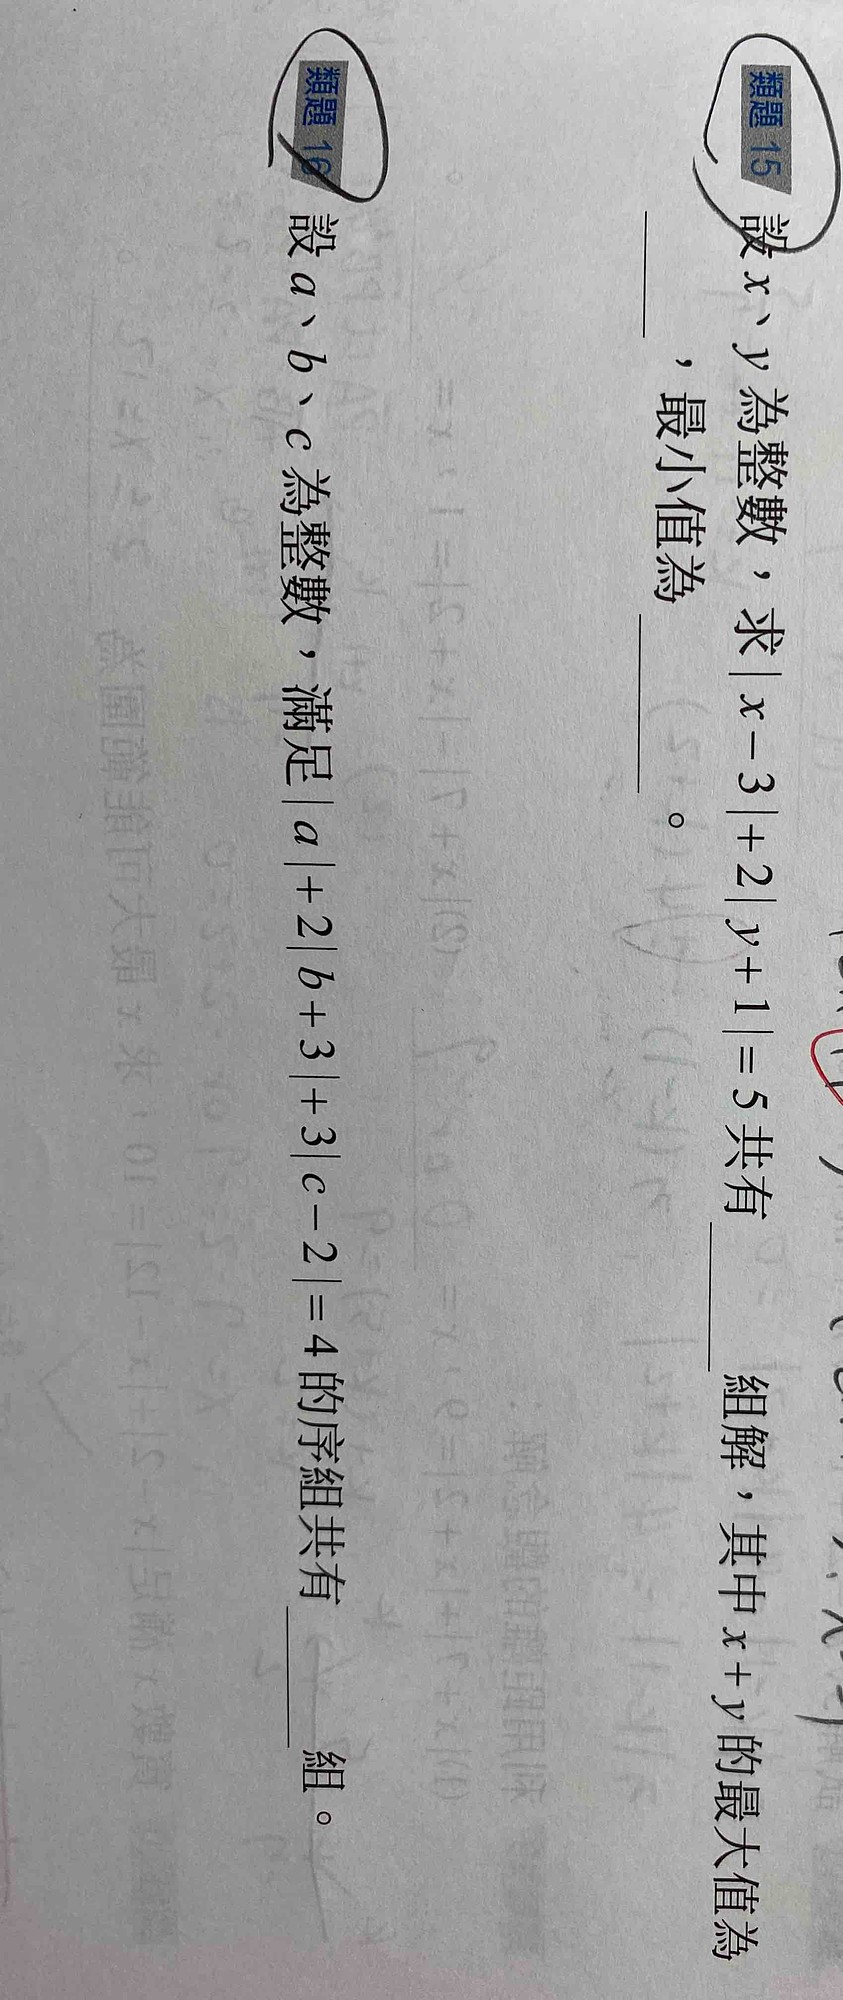 類題 15
設 x、y 為整數，求 | x − 3 | + 2 | y + 1 | = 5 共有 ______ 組解，其中 x + y 的最大值為
______ ，最小值為 ______ 。
類題 16
設 a、b、c 為整數，滿足 | a | + 2 | b + 3 | + 3 | c − 2 | = 4 的序組共有 ______ 組。